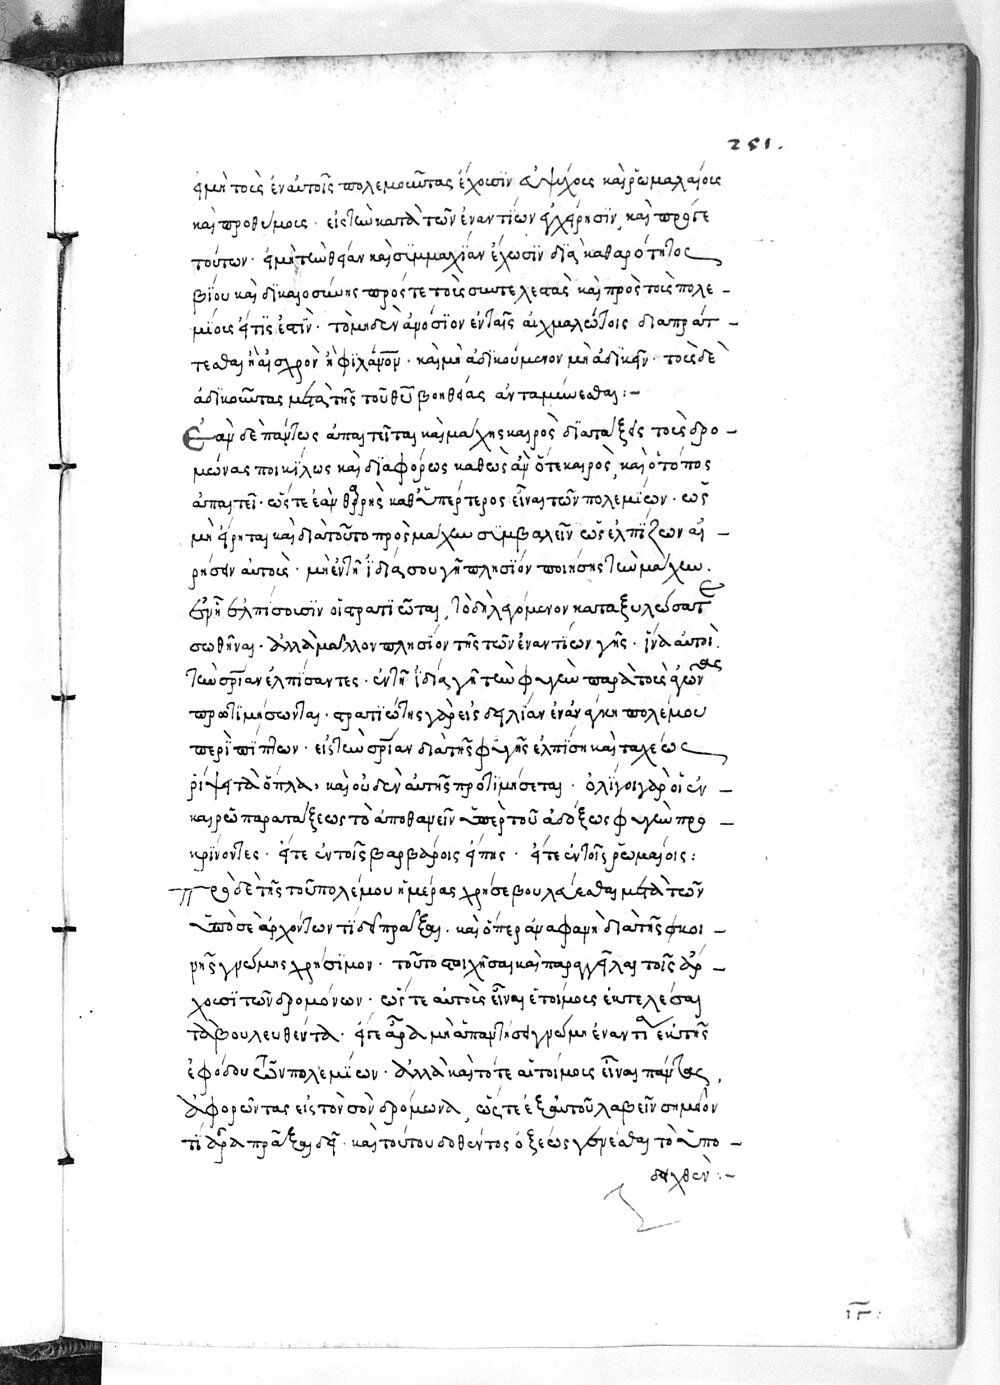 251.
ἵνα τοὺς ἐν αὐτοῖς πολεμοῦντας ἔχουσιν εὐψύχους καὶ ῥωμαλαίους
καὶ προθύμους. εἰς τὴν κατὰ τῶν ἐναντίων ἐγχείρησιν, καὶ πρό γε
τούτων. ἵνα τὴν θείαν καὶ συμμαχίαν ἔχωσιν διὰ καθαρότητος
βίου καὶ δικαιοσύνης πρός τε τοὺς συντελεστὰς καὶ πρὸς τοὺς πολε-
μίους ἥτις ἐστὶν. τὸ μηδὲν ἀνόσιον ἐν ταῖς αἰχμαλώτοις διαπράτ-
τεσθαι ἢ αἰσχρὸν ἢ φιλάνον. καὶ μὴ ἀδικούμενον μὴ ἀδικεῖν. τοὺς δὲ
ἀδικοῦντας μετὰ τῆς τοῦ θῦ βοηθείας ἀνταμύνεσθαι:-
Ἐὰν δὲ πάντως ἀπαιτεῖται καὶ μάχης καιρὸς διατάξεις τοὺς δρό-
μωνας ποικίλως καὶ διαφόρως καθὼς ἂν ὅτε καιρὸς, καὶ ὁ τόπος
ἀπαιτεῖ. ὥστε ἐὰν θαρρῇς καθυπέρτερος εἶναι τῶν πολεμίων. ὡς
μὴ εἴρηται καὶ διὰ τοῦτο πρὸς μάχην συμβαλεῖν ὡς ἐλπίζων αἱ-
ρήσειν αὐτοὺς. μὴ ἐν τῇ ἰδίᾳ σου γῇ πλησίον ποιήσῃς τὴν μάχην.
ἐν ᾗ ἐλπίσουσιν οἱ στρατιῶται, τὸ δὴ λεγόμενον καταξυλώσαντες
σωθῆναι. ἀλλὰ μᾶλλον πλησίον τῆς τῶν ἐναντίων γῆς. ἵνα αὐτοὶ
τὴν σρίαν ἐλπίσαντες. ἐν τῇ ἰδίᾳ γῇ τὴν φυγὴν παρὰ τοὺς ἀγῶνας
προτιμήσωνται. στρατιώτης γὰρ εἰς δειλίαν ἐν ἀνάγκῃ πολέμου
περιπίπτων. εἰς τὴν σρίαν διὰ τῆς φυγῆς ἐλπίσῃ καὶ ταχέως
ῥίψει τὰ ὅπλα, καὶ οὐδὲν αὐτῆς προτιμήσεται. ὀλίγοι γὰρ οἱ ἐν
καιρῷ παρατάξεως τὸ ἀποθανεῖν ὑπὲρ τοῦ ἀδόξως φυγεῖν προ-
κρίνοντες. εἴτε ἐν τοῖς βαρβάροις εἴπῃς. εἴτε ἐν τοῖς ῥωμαίοις:
Πρὸ δὲ τῆς τοῦ πολέμου ἡμέρας χρή σε βουλεύεσθαι μετὰ τῶν
ὑπὸ σὲ ἀρχόντων τί δεῖ πρᾶξαι. καὶ ὅπερ ἀναφανῇ διὰ τῆς κοι-
νῆς γνώμης χρήσιμον. τοῦτο στοιχῆσαι καὶ παραγγεῖλαι τοῖς ἄρ-
χουσι τῶν δρομώνων. ὥστε αὐτοὺς εἶναι ἑτοίμους ἐκτελέσαι
τὰ βουλευθέντα. εἴτε ἄρα μὴ ἀπαντήσῃ γνώμη ἐναντία ἐκ τῆς
ἐφόδου τῶν πολεμίων. ἀλλὰ καὶ τότε ἑτοίμους εἶναι πάντας,
ἀφορῶντας εἰς τὸν σὸν δρόμωνα, ὥστε ἐξ αὐτοῦ λαβεῖν σημεῖον
τί ἄρα πρᾶξαι δεῖ. καὶ τούτου δοθέντος ὀξέως γενέσθαι τὸ ὑπο-
δειχθὲν:-